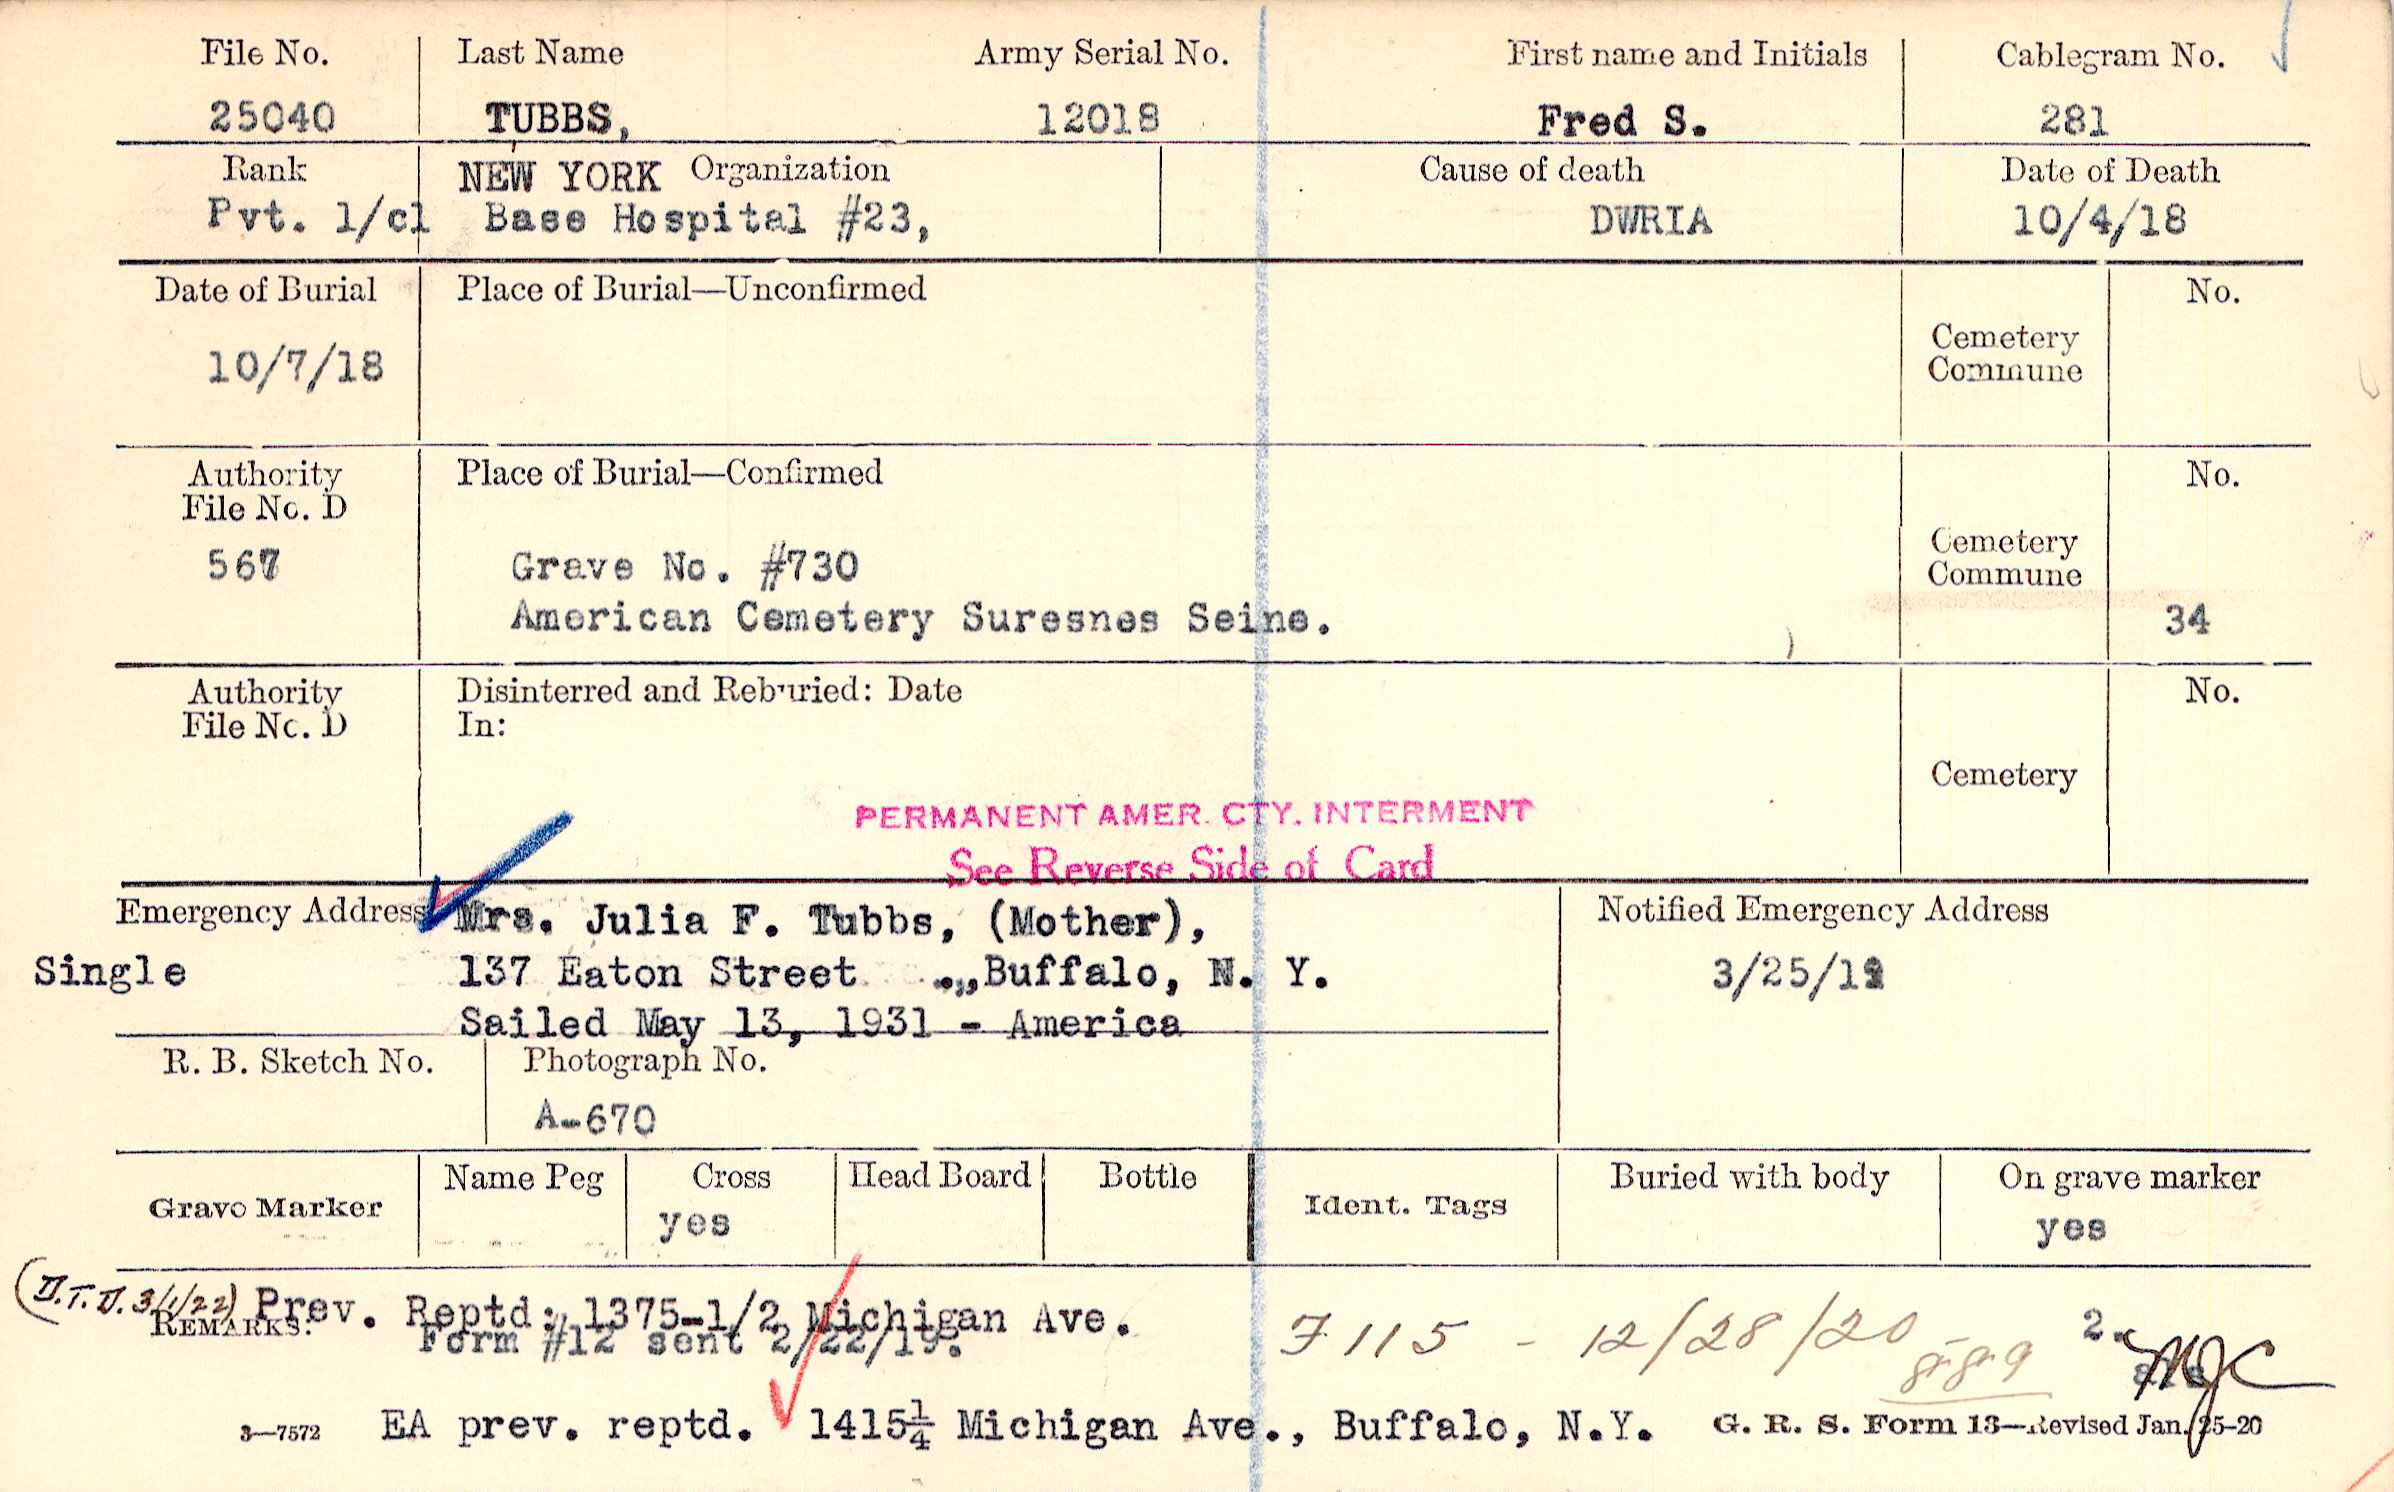 File No. Last Name Army Serial No. First name and Initials Cablegram No.
25040 TUBBS, 12018 Fred S. 281
Rank NEW YORK Organization Cause of death Date of Death
Pvt. 1/cl Base Hospital #23, DWRIA 10/4/18
Date of Burial Place of Burial—Unconfirmed No.
10/7/18
Cemetery
Commune
Authority Place of Burial—Confirmed No.
File No. D
567 Grave No. #730
Cemetery
Commune
American Cemetery Suresnes Seine. 34
Authority Disinterred and Reburied: Date No.
File No. D In:
Cemetery
PERMANENT AMER. CTY. INTERMENT
See Reverse Side of Card
Emergency Address Mrs. Julia F. Tubbs, (Mother), Notified Emergency Address
Single 137 Eaton Street .,,Buffalo, N. Y. 3/25/19
Sailed May 13, 1931 - America
R. B. Sketch No. Photograph No.
A-670
Grave Marker Name Peg Cross Head Board Bottle Ident. Tags Buried with body On grave marker
yes yes
(D.T.D. 3/1/22) Prev. Reptd: 1375-1/2 Michigan Ave.
REMARKS: Form #12 sent 2/22/19. F 115 - 12/28/20 2.
889 MJC
3—7572 EA prev. reptd. 1415¼ Michigan Ave., Buffalo, N.Y. G. R. S. Form 13—Revised Jan. 25-20